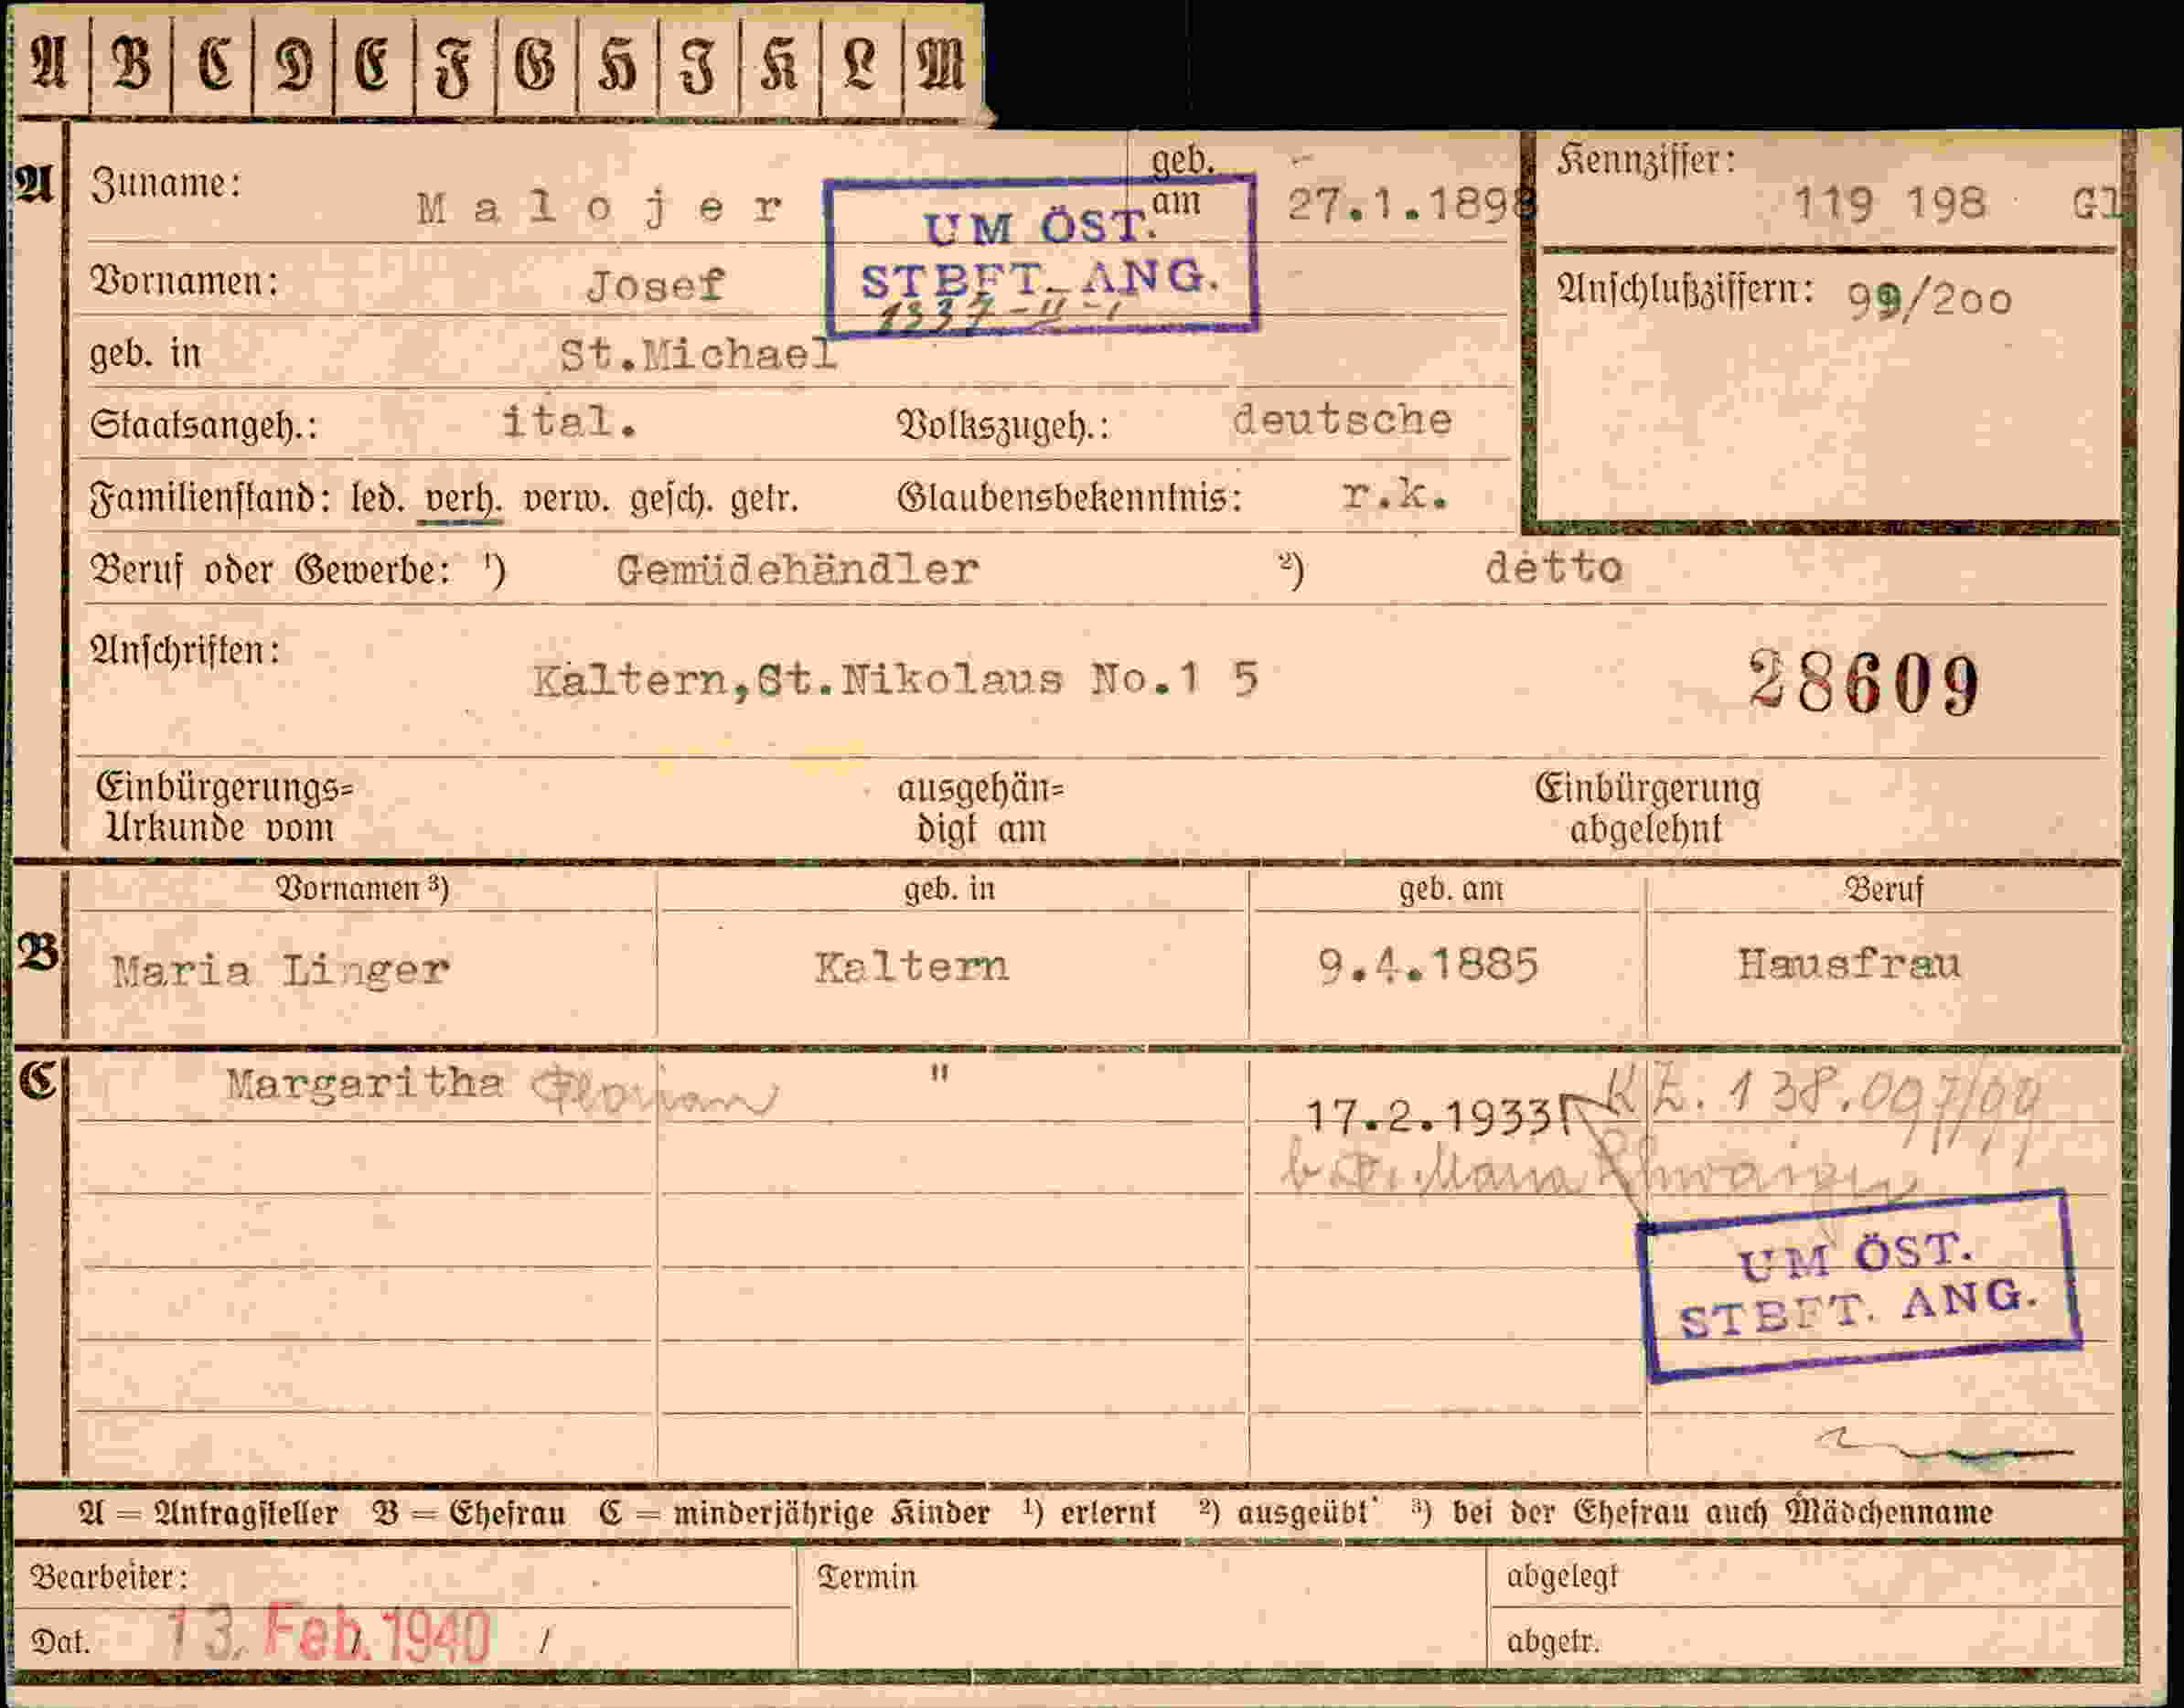 A B C D E F G H I K L M
A
Zuname: Malojer
geb. am 27.1.1898
Kennziffer: 119 198 Gl
UM ÖST.
STBFT. ANG.
1337-II-1
Vornamen: Josef
Anschlußziffern: 99/200
geb. in St.Michael
Staatsangeh.: ital. Volkszugeh.: deutsche
Familienstand: led. verh. verw. gesch. getr. Glaubensbekenntnis: r.k.
Beruf oder Gewerbe: ¹) Gemüdehändler ²) detto
Anschriften: Kaltern,St.Nikolaus No.1 5
28609
Einbürgerungs=
Urkunde vom
ausgehän=
digt am
Einbürgerung
abgelehnt
Vornamen ³) geb. in geb. am Beruf
B Maria Linger Kaltern 9.4.1885 Hausfrau
C Margaritha Florian " 17.2.1933 KZ. 138.097/99
Maria Schwaiger
UM ÖST.
STBFT. ANG.
A = Antragsteller B = Ehefrau C = minderjährige Kinder ¹) erlernt ²) ausgeübt ³) bei der Ehefrau auch Mädchenname
Bearbeiter: Termin abgelegt
Dat. 13. Feb. 1940 / abgetr.